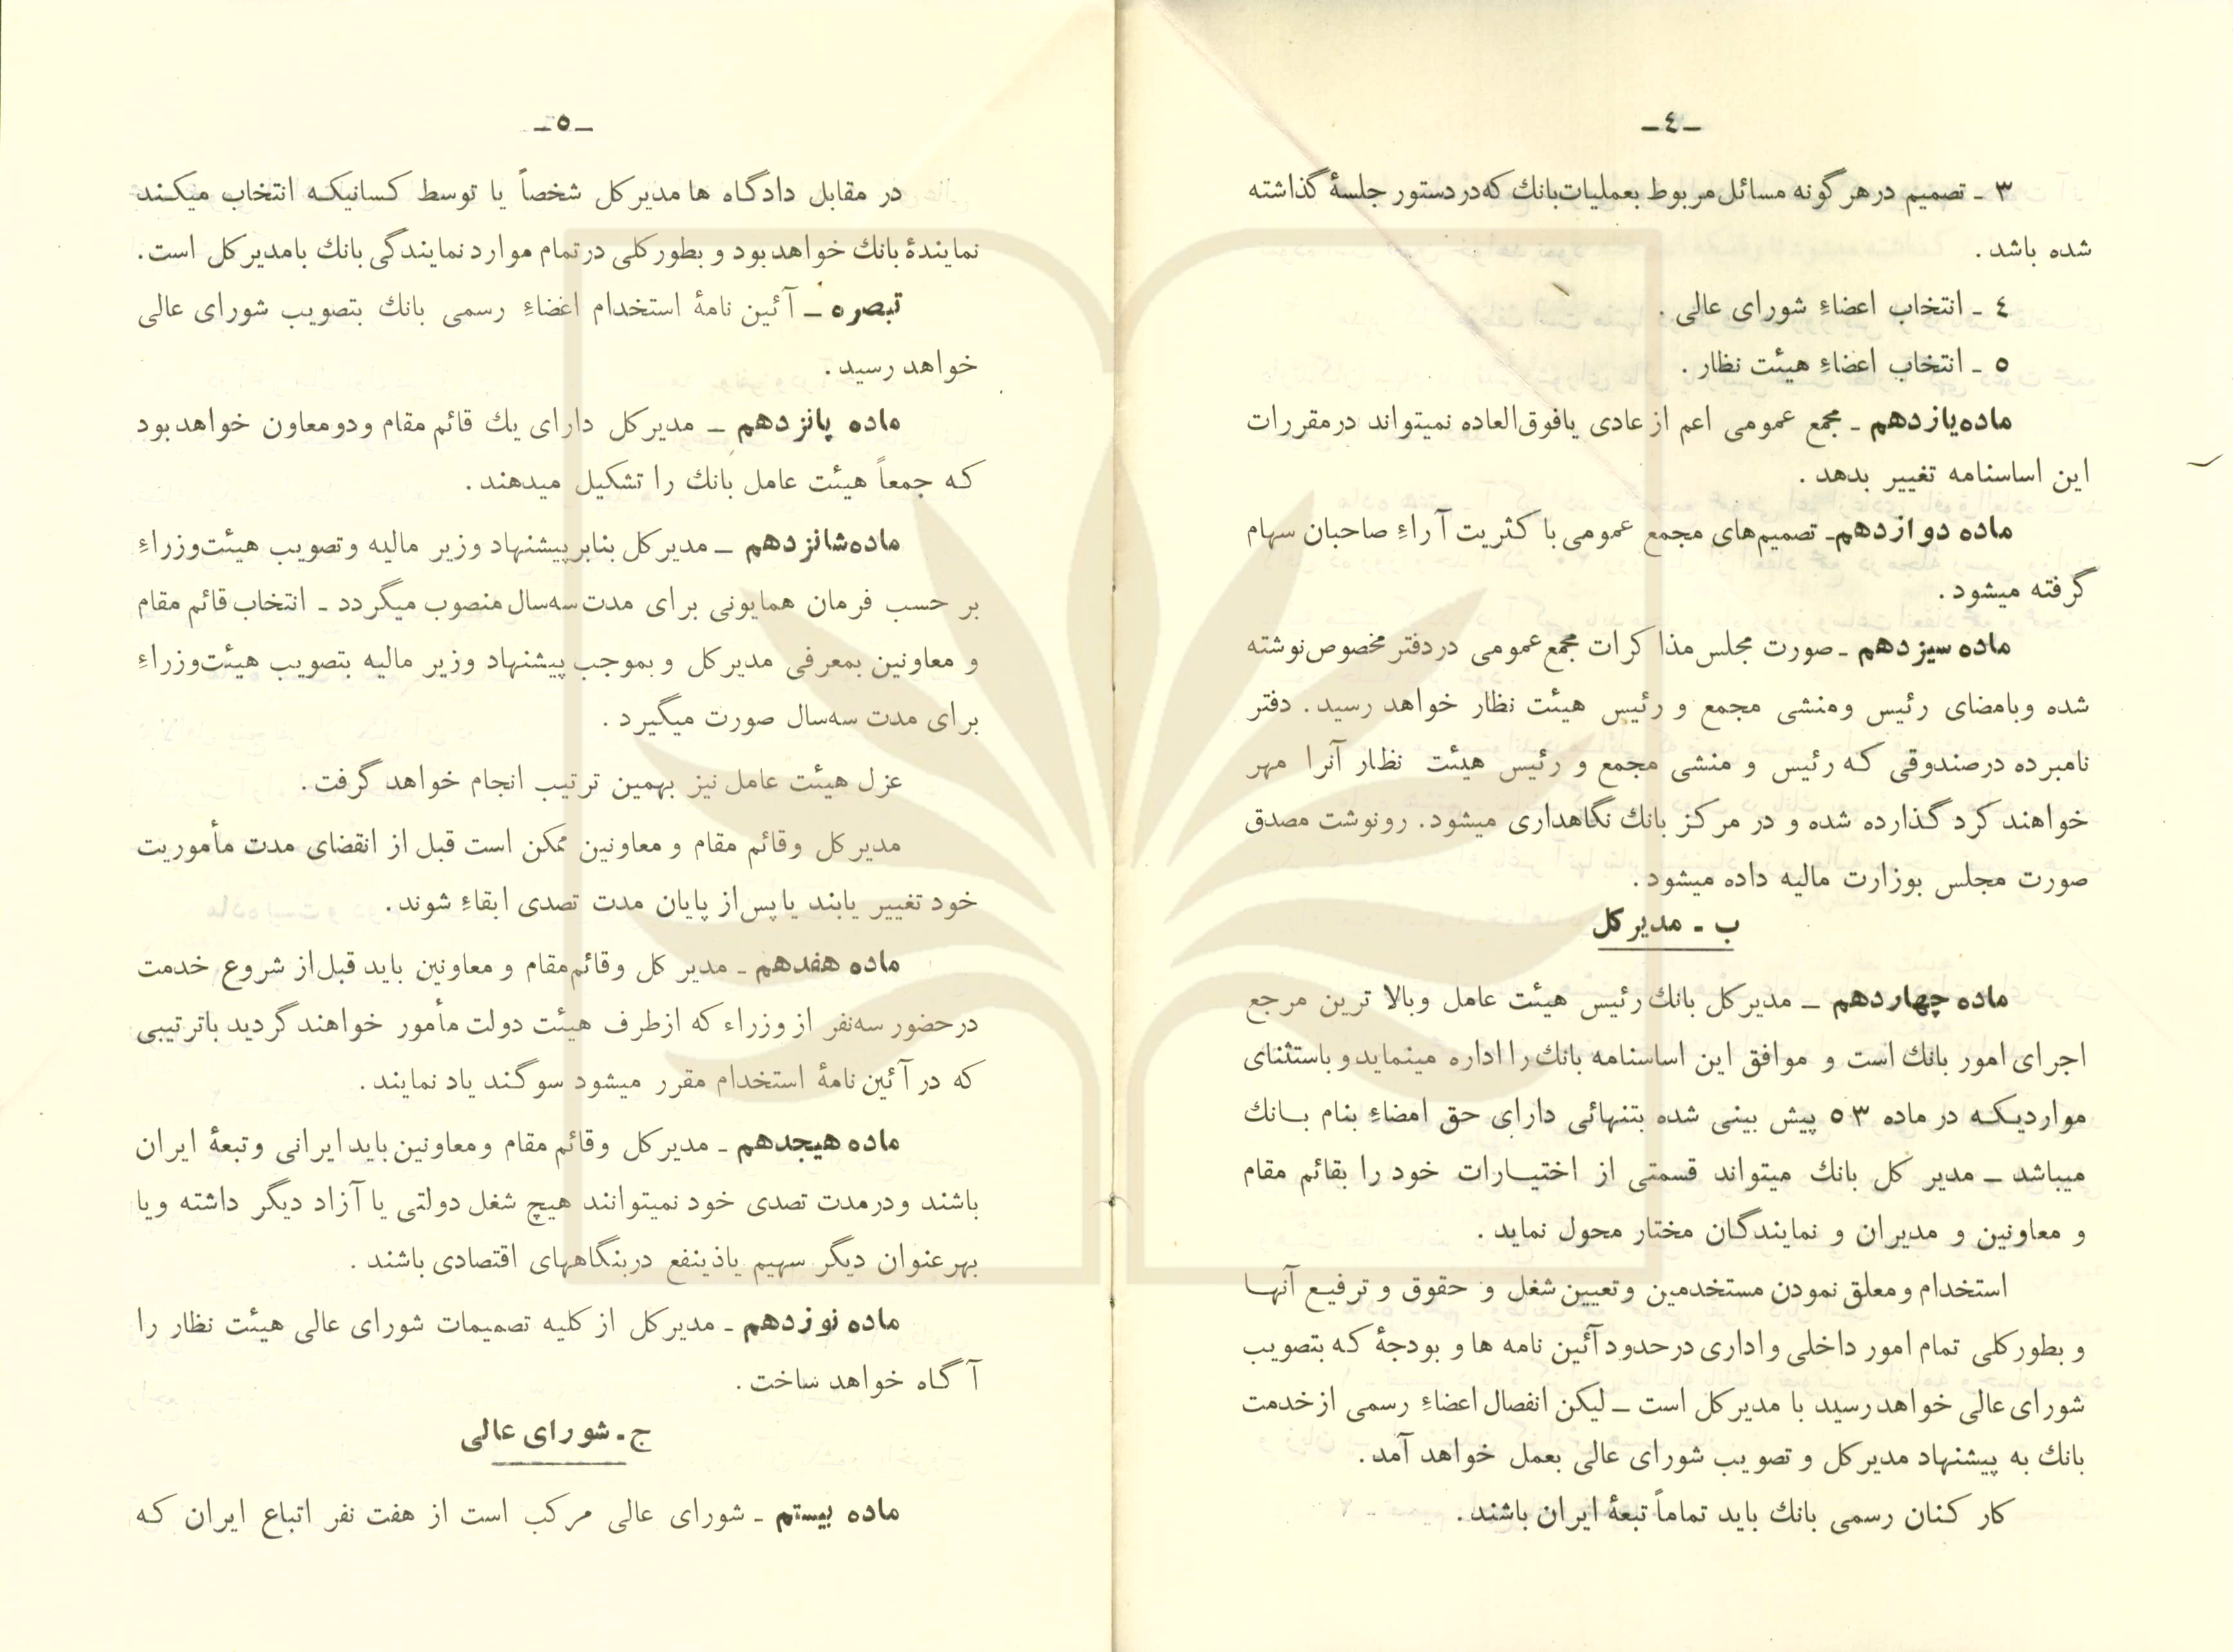 ـ٤ـ
٣ ـ تصمیم در هر گونه مسائل مربوط بعملیات بانك که در دستور جلسهٔ گذاشته
شده باشد .
٤ ـ انتخاب اعضاءِ شورای عالی .
٥ ـ انتخاب اعضاءِ هیئت نظار .
ماده یازدهم ـ مجمع عمومی اعم از عادی یا فوق‌العاده نمیتواند در مقررات
این اساسنامه تغییر بدهد .
ماده دوازدهم ـ تصمیم‌های مجمع عمومی با کثریت آراءِ صاحبان سهام
گرفته میشود .
ماده سیزدهم ـ صورت مجلس مذاکرات مجمع عمومی در دفتر مخصوص نوشته
شده و بامضای رئیس و منشی مجمع و رئیس هیئت نظار خواهد رسید . دفتر
نامبرده در صندوقی که رئیس و منشی مجمع و رئیس هیئت نظار آنرا مهر
خواهند کرد گذارده شده و در مرکز بانك نگاهداری میشود . رونوشت مصدق
صورت مجلس بوزارت مالیه داده میشود .
ب ـ مدیر کل
ماده چهاردهم ـ مدیر کل بانك رئیس هیئت عامل و بالا ترین مرجع
اجرای امور بانك است و موافق این اساسنامه بانك را اداره مینماید و باستثنای
مواردیکه در ماده ٥٣ پیش بینی شده بتنهائی دارای حق امضاءِ بنام بانك
میباشد ـ مدیر کل بانك میتواند قسمتی از اختیارات خود را بقائم مقام
و معاونین و مدیران و نمایندگان مختار محول نماید .
استخدام و معلق نمودن مستخدمین و تعیین شغل و حقوق و ترفیع آنها
و بطور کلی تمام امور داخلی و اداری در حدود آئین نامه ها و بودجهٔ که بتصویب
شورای عالی خواهد رسید با مدیر کل است ـ لیکن انفصال اعضاءِ رسمی از خدمت
بانك به پیشنهاد مدیر کل و تصویب شورای عالی بعمل خواهد آمد .
کار کنان رسمی بانك باید تماماً تبعهٔ ایران باشند .
ـ٥ـ
در مقابل دادگاه ها مدیر کل شخصاً یا توسط کسانیکه انتخاب میکند
نمایندهٔ بانك خواهد بود و بطور کلی در تمام موارد نمایندگی بانك با مدیر کل است .
تبصره ـ آئین نامهٔ استخدام اعضاءِ رسمی بانك بتصویب شورای عالی
خواهد رسید .
ماده پانزدهم ـ مدیر کل دارای یك قائم مقام و دو معاون خواهد بود
که جمعاً هیئت عامل بانك را تشکیل میدهند .
ماده شانزدهم ـ مدیر کل بنابر پیشنهاد وزیر مالیه و تصویب هیئت وزراءِ
بر حسب فرمان همایونی برای مدت سه سال منصوب میگردد ـ انتخاب قائم مقام
و معاونین بمعرفی مدیر کل و بموجب پیشنهاد وزیر مالیه بتصویب هیئت وزراءِ
برای مدت سه سال صورت میگیرد .
عزل هیئت عامل نیز بهمین ترتیب انجام خواهد گرفت .
مدیر کل و قائم مقام و معاونین ممکن است قبل از انقضای مدت مأموریت
خود تغییر یابند یا پس از پایان مدت تصدی ابقاءِ شوند .
ماده هفدهم ـ مدیر کل و قائم مقام و معاونین باید قبل از شروع خدمت
در حضور سه نفر از وزراء که از طرف هیئت دولت مأمور خواهند گردید با ترتیبی
که در آئین نامهٔ استخدام مقرر میشود سوگند یاد نمایند .
ماده هیجدهم ـ مدیر کل و قائم مقام و معاونین باید ایرانی و تبعهٔ ایران
باشند و در مدت تصدی خود نمیتوانند هیچ شغل دولتی یا آزاد دیگر داشته و یا
بهر عنوان دیگر سهیم یا ذینفع در بنگاههای اقتصادی باشند .
ماده نوزدهم ـ مدیر کل از کلیه تصمیمات شورای عالی هیئت نظار را
آگاه خواهد ساخت .
ج ـ شورای عالی
ماده بیستم ـ شورای عالی مرکب است از هفت نفر اتباع ایران که